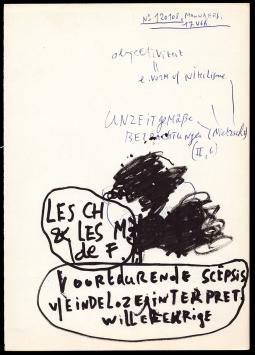 objectiviteit
e. vorm v/ nihilisme
UNZEITGEMÄßE
BETRACHTUNGEN (Nietzsche)
(II, 6)
LES CH
& LES M
de F.
VOORTDURENDE SCEPSIS
V/EINDELOZE INTERPRET.
WILLEKEURIGE